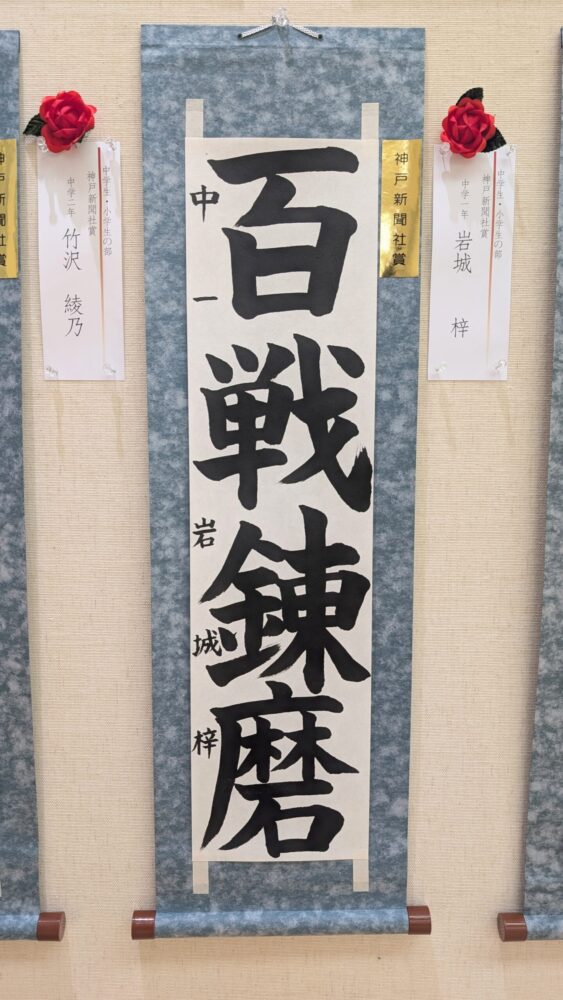 百戦錬磨
中一 岩城 梓
神戸新聞社賞
中学生・小学生の部
神戸新聞社賞
中学一年 岩城 梓
神戸新聞社賞
中学生・小学生の部
神戸新聞社賞
中学二年 竹沢 綾乃